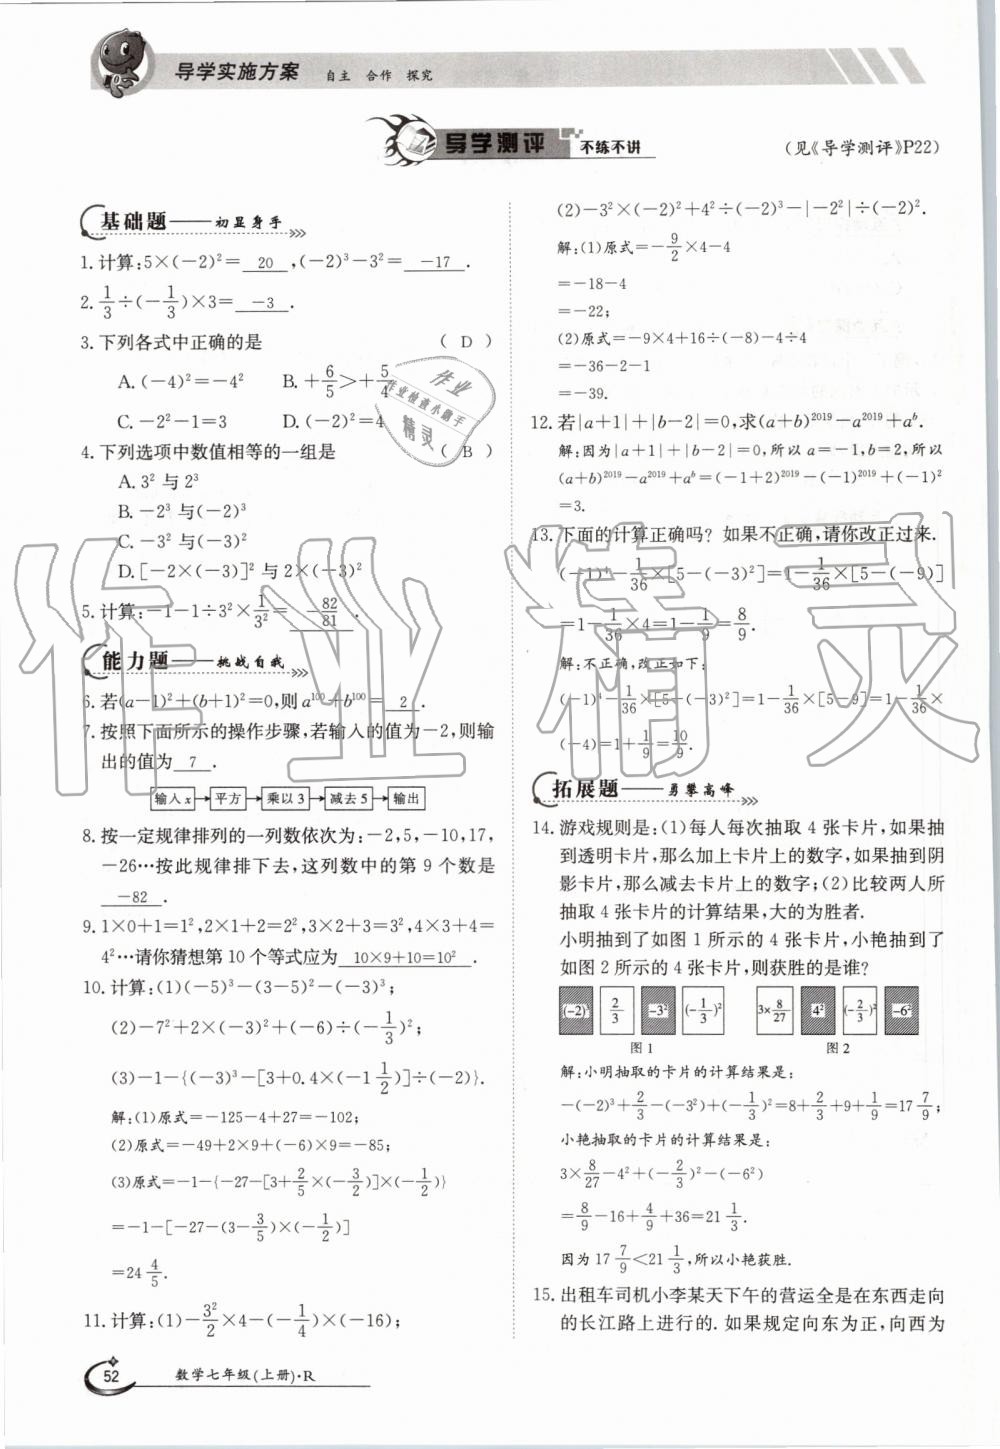 导学实施方案 自主 合作 探究
导学测评 不练不讲
(见《导学测评》P22)
基础题——初显身手
1.计算:5×(-2)²= 20 ,(-2)³-3²= -17 .
2. 1/3÷(-1/3)×3= -3 .
3.下列各式中正确的是 ( D )
A.(-4)²=-4² B.+6/5>+5/4
C.-2²-1=3 D.(-2)²=4
4.下列选项中数值相等的一组是 ( B )
A.3²与2³
B.-2³与(-2)³
C.-3²与(-3)²
D.[-2×(-3)]²与2×(-3)²
5.计算:-1-1÷3²×1/3²= -82/81 .
能力题——挑战自我
6.若(a-1)²+(b+1)²=0,则a¹⁰⁰+b¹⁰⁰= 2 .
7.按照下面所示的操作步骤,若输入的值为-2,则输
出的值为 7 .
输入x→平方→乘以3→减去5→输出
8.按一定规律排列的一列数依次为:-2,5,-10,17,
-26…按此规律排下去,这列数中的第9个数是
-82 .
9.1×0+1=1²,2×1+2=2²,3×2+3=3²,4×3+4=
4²…请你猜想第10个等式应为 10×9+10=10² .
10.计算:(1)(-5)³-(3-5)²-(-3)³;
(2)-7²+2×(-3)²+(-6)÷(-1/3)²;
(3)-1-{(-3)³-[3+0.4×(-1 1/2)]÷(-2)}.
解:(1)原式=-125-4+27=-102;
(2)原式=-49+2×9+(-6)×9=-85;
(3)原式=-1-{-27-[3+2/5×(-3/2)]×(-1/2)}
=-1-[-27-(3-3/5)×(-1/2)]
=24 4/5.
11.计算:(1)-3²/2×4-(-1/4)×(-16);
(2)-3²×(-2)²+4²÷(-2)³-|-2²|÷(-2)².
解:(1)原式=-9/2×4-4
=-18-4
=-22;
(2)原式=-9×4+16÷(-8)-4÷4
=-36-2-1
=-39.
12.若|a+1|+|b-2|=0,求(a+b)²⁰¹⁹-a²⁰¹⁹+aᵇ.
解:因为|a+1|+|b-2|=0,所以a=-1,b=2,所以
(a+b)²⁰¹⁹-a²⁰¹⁹+aᵇ=(-1+2)²⁰¹⁹-(-1)²⁰¹⁹+(-1)²
=3.
13.下面的计算正确吗?如果不正确,请你改正过来.
(-1)⁴-1/36×[5-(-3)²]=1-1/36×[5-(-9)]
=1-1/36×4=1-1/9=8/9.
解:不正确,改正如下:
(-1)⁴-1/36×[5-(-3)²]=1-1/36×[5-9]=1-1/36×
(-4)=1+1/9=10/9.
拓展题——勇攀高峰
14.游戏规则是:(1)每人每次抽取4张卡片,如果抽
到透明卡片,那么加上卡片上的数字,如果抽到阴
影卡片,那么减去卡片上的数字;(2)比较两人所
抽取4张卡片的计算结果,大的为胜者.
小明抽到了如图1所示的4张卡片,小艳抽到了
如图2所示的4张卡片,则获胜的是谁?
(-2)³ 2/3 -3² (-1/3)² 3×8/27 4² (-2/3)² -6²
图1 图2
解:小明抽取的卡片的计算结果是:
-(-2)³+2/3-(-3²)+(-1/3)²=8+2/3+9+1/9=17 7/9;
小艳抽取的卡片的计算结果是:
3×8/27-4²+(-2/3)²-(-6²)
=8/9-16+4/9+36=21 1/3.
因为17 7/9<21 1/3,所以小艳获胜.
15.出租车司机小李某天下午的营运全是在东西走向
的长江路上进行的.如果规定向东为正,向西为
52 数学七年级(上册)·R
作业精灵
作业
作业检查小助手
精灵